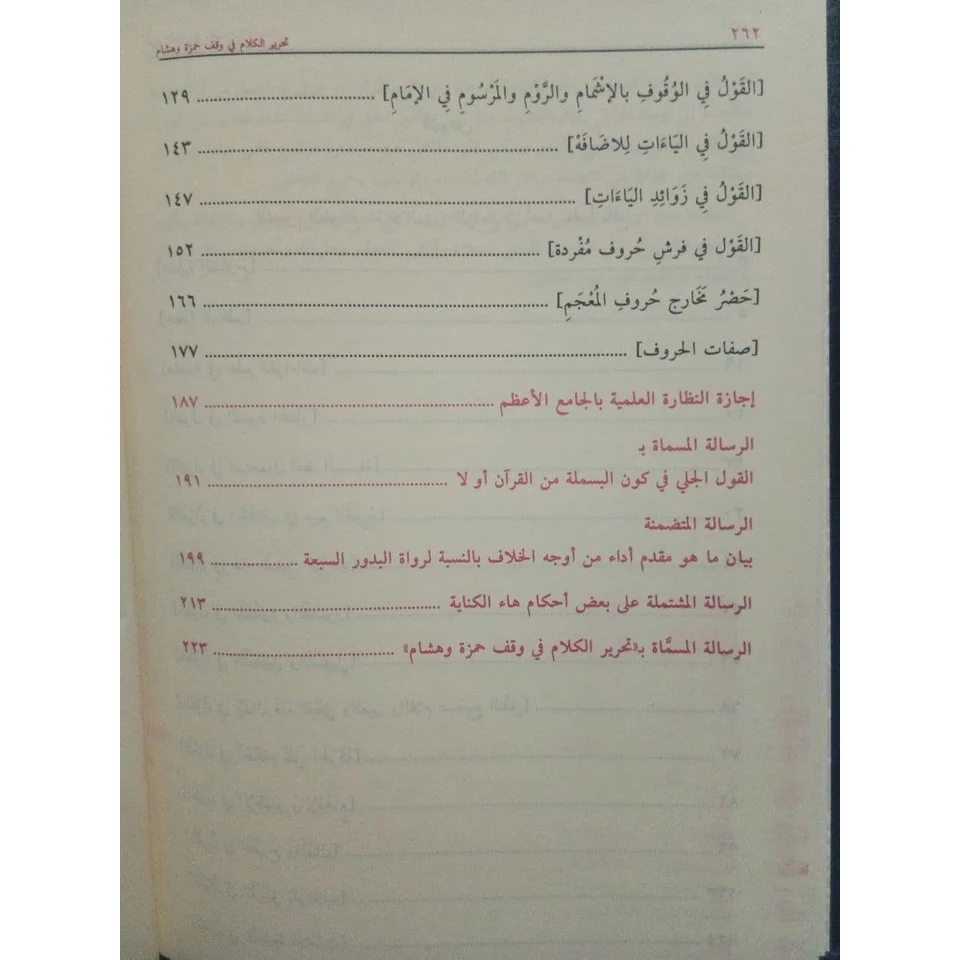 ٢٦٢
تحرير الكلام في وقف حمزة وهشام
[القَوْلُ فِي الوُقُوفِ بالإشْمَامِ والرَّوْمِ والمَرْسُومِ فِي الإمَامِ] ........ ١٢٩
[القَوْلُ فِي اليَاءَاتِ لِلاضَافَهْ] ........ ١٤٣
[القَوْلُ فِي زَوَائِدِ اليَاءَاتِ] ........ ١٤٧
[القَوْل في فرشِ حُروف مُفْردة] ........ ١٥٢
[حَصْرُ مَخَارج حُروفِ المُعْجَمِ] ........ ١٦٦
[صفات الحروف] ........ ١٧٧
إجازة النظارة العلمية بالجامع الأعظم ........ ١٨٧
الرسالة المسماة بـ
القول الجلي في كون البسملة من القرآن أو لا ........ ١٩١
الرسالة المتضمنة
بيان ما هو مقدم أداء من أوجه الخلاف بالنسبة لرواة البدور السبعة ........ ١٩٩
الرسالة المشتملة على بعض أحكام هاء الكناية ........ ٢١٣
الرسالة المسمَّاة بـ«تحرير الكلام في وقف حمزة وهشام» ........ ٢٢٣